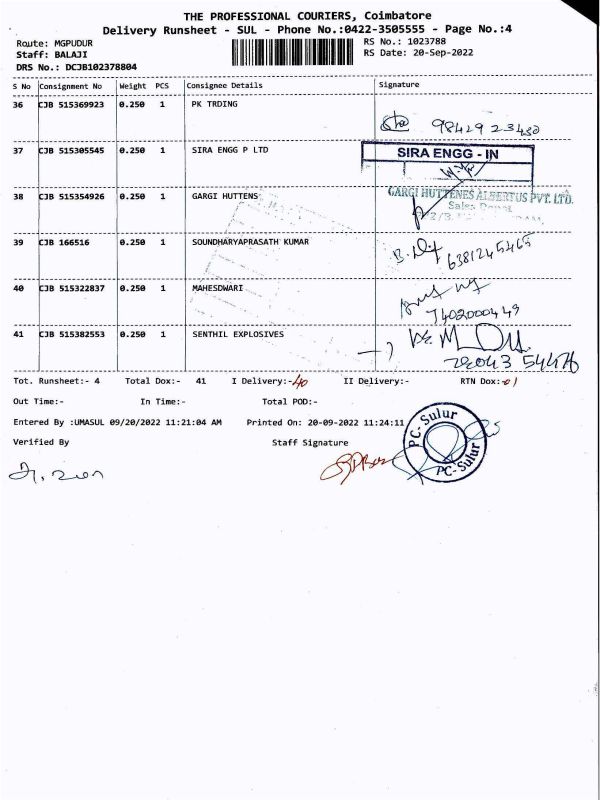 THE PROFESSIONAL COURIERS, Coimbatore
Delivery Runsheet - SUL - Phone No.:0422-3505555 - Page No.:4
Route: MGPUDUR
RS No.: 1023788
Staff: BALAJI
RS Date: 20-Sep-2022
DRS No.: DCJB102378804
S No Consignment No Weight PCS Consignee Details Signature
36 CJB 515369923 0.250 1 PK TRDING
98429 23430
37 CJB 515305545 0.250 1 SIRA ENGG P LTD
SIRA ENGG - IN
38 CJB 515354926 0.250 1 GARGI HUTTENS
GARGI HUTTENES ALBERTUS PVT. LTD.
Sales Depot
39 CJB 166516 0.250 1 SOUNDHARYAPRASATH KUMAR
6381245465
40 CJB 515322837 0.250 1 MAHESDWARI
7402000449
41 CJB 515382553 0.250 1 SENTHIL EXPLOSIVES
Tot. Runsheet:- 4 Total Dox:- 41 I Delivery:-40 II Delivery:- RTN Dox:-01
Out Time:- In Time:- Total POD:-
Entered By :UMASUL 09/20/2022 11:21:04 AM Printed On: 20-09-2022 11:24:11
Verified By Staff Signature
PC-Sulur
PC-Sulur